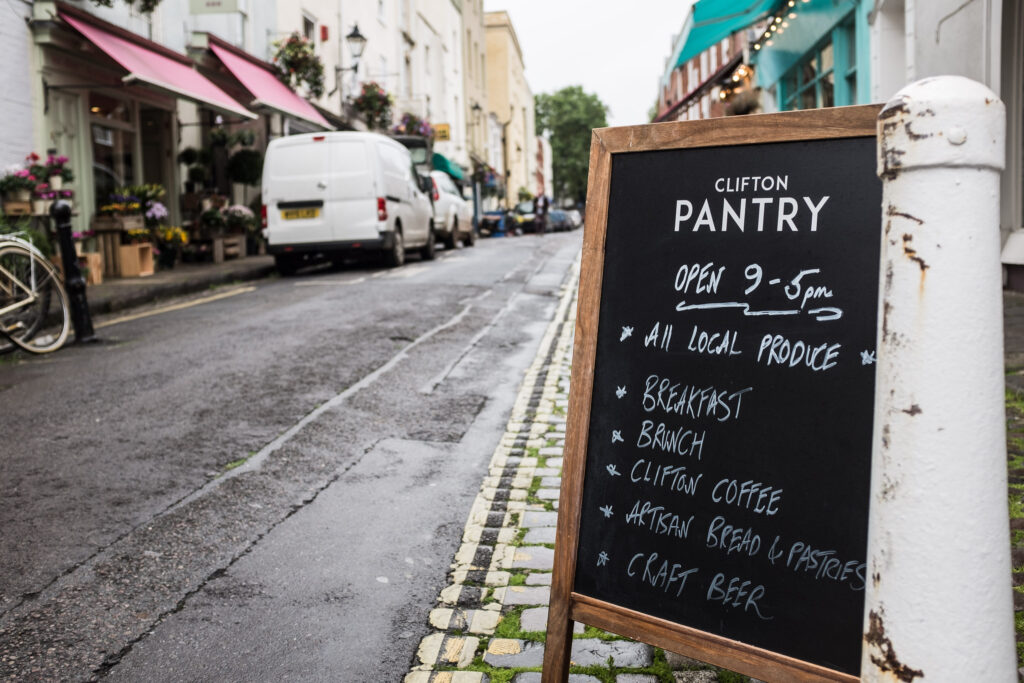 CLIFTON
PANTRY
OPEN 9-5pm
* All LOCAL PRODUCE *
* BREAKFAST
* BRUNCH
* CLIFTON COFFEE
* ARTISAN BREAD & PASTRIES
* CRAFT BEER